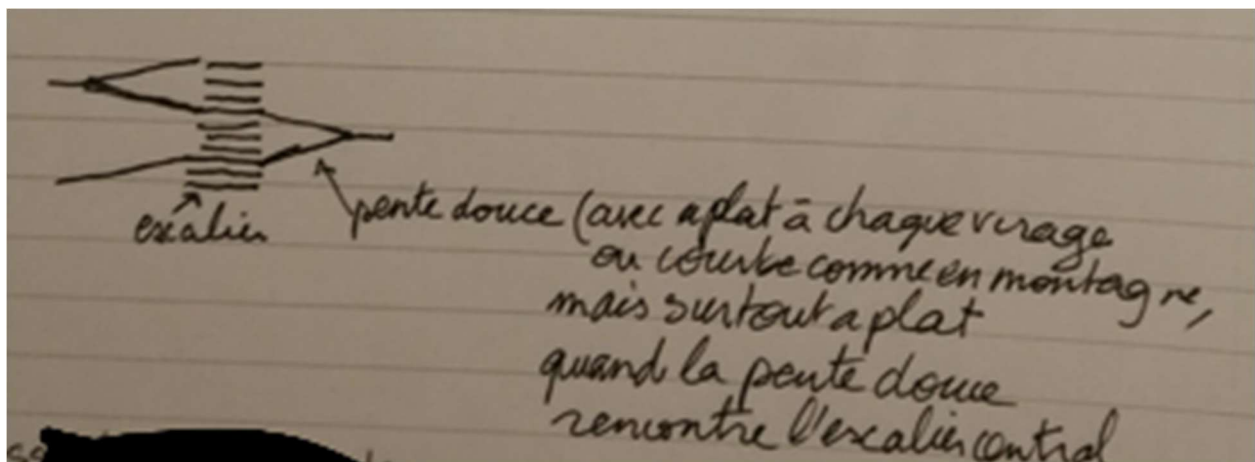 escalier
pente douce (avec aplat à chaque virage
ou courbe comme en montagne,
mais surtout aplat
quand la pente douce
rencontre l'escalier central